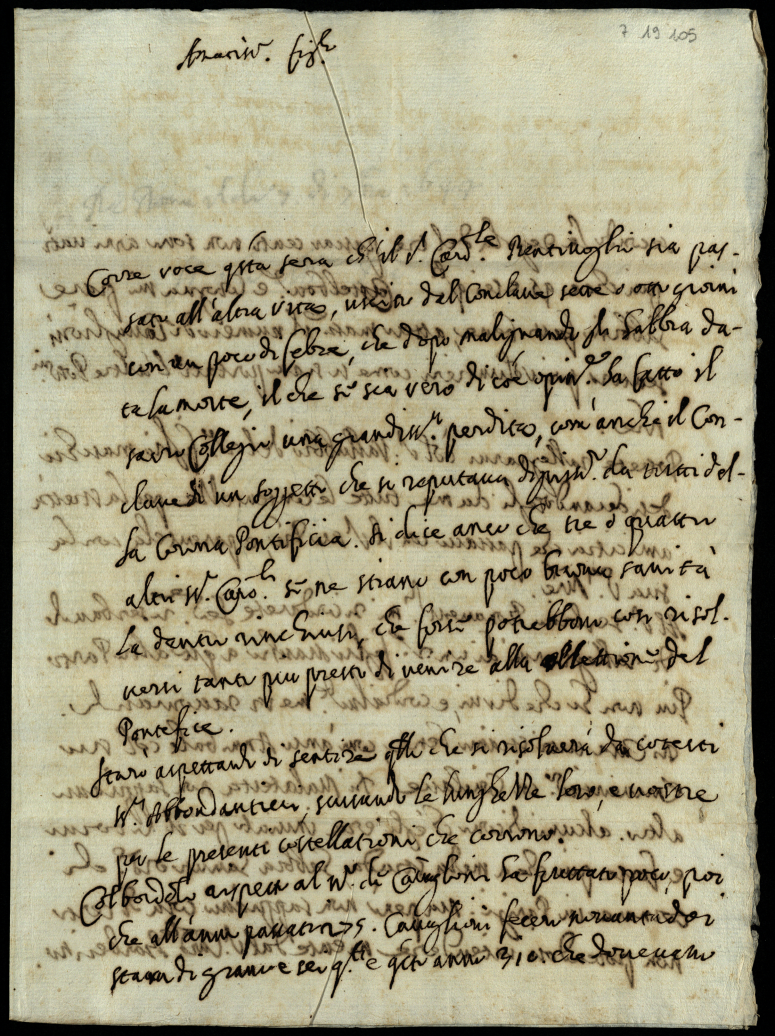 7 19 105
Amatiss. figl.
Corre voce qsta sera ch' il S. Card.le Bentivoglio sia pas-
sato all'altra vita, uscito dal Conclave sette o otto giorni
con un poco di febre, che dopo malignando gli habbia da-
ta la morte, il che se sia vero di co'e opin.e ha fatto il
sacro Collegio una grandiss. perdita, com'anche il Con-
clave di un soggetto che si reputava digniss. da tutti del-
la Corona Pontificia. Si dice anco che tre o quattro
altri SS. Card.li se ne stiano con poco buona sanità
la dentro rinchiusi, che forse potrebbono così risol-
versi tanto più presto di venire alla elettione del
Pontefice.
Starò aspettando di sentire qllo che si risolverà da cotesti
SS. Abbondantieri, scusando le lunghezze loro, e nostre
per le presenti costellationi che corrono.
Colbordolo rispetto al N. di Caviglioni ha fruttato poco, poi
che all'anno passato 275. Caviglioni fecero novantadoi
stara di grano e sei q.te e qsto anno 310 che dovevano